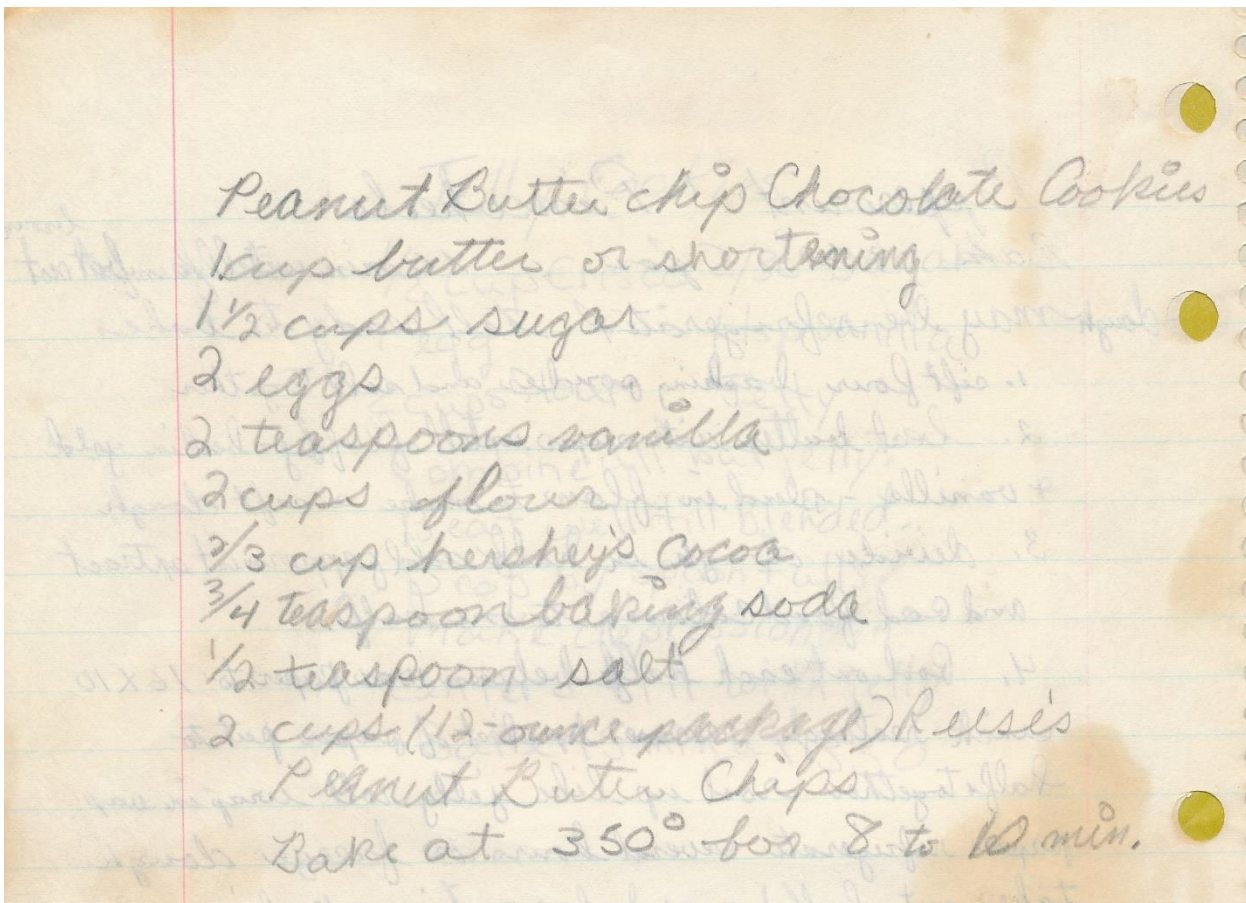 Peanut Butter chip Chocolate Cookies
1 cup butter or shortening
1 1/2 cups sugar
2 eggs
2 teaspoons vanilla
2 cups flour
2/3 cup hershey's Cocoa
3/4 teaspoon baking soda
1/2 teaspoon salt
2 cups (12-ounce package) Reese's
Peanut Butter Chips
Bake at 350° for 8 to 10 min.